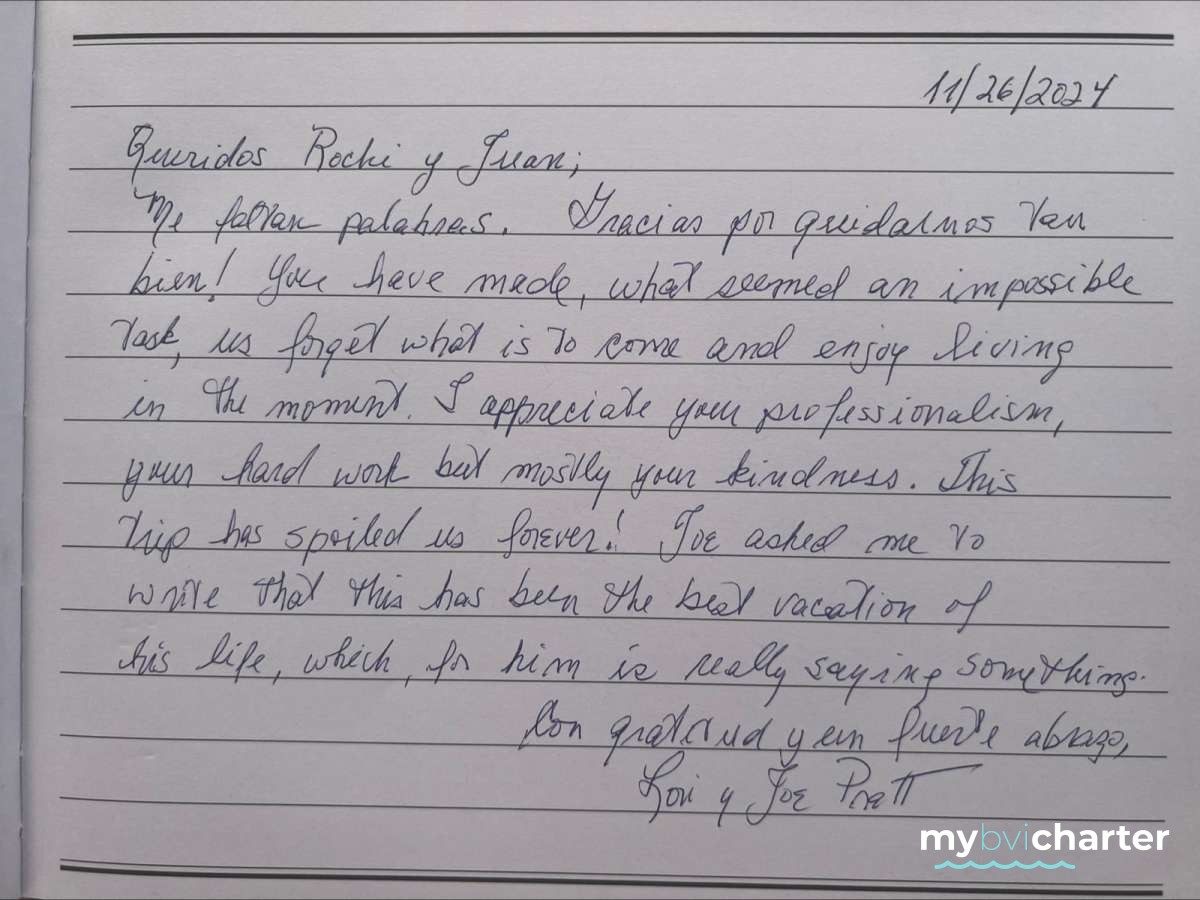 11/26/2024
Queridos Rochi y Juan;
Me faltan palabras. Gracias por quidarnos tan
bien! You have made, what seemed an impossible
task, us forget what is to come and enjoy living
in the moment. I appreciate your professionalism,
your hard work but mostly your kindness. This
trip has spoiled us forever! Joe asked me to
write that this has been the best vacation of
his life, which, for him is really saying something.
Con gratitud y un fuerte abrazo,
Lori y Joe Pratt
mybvicharter